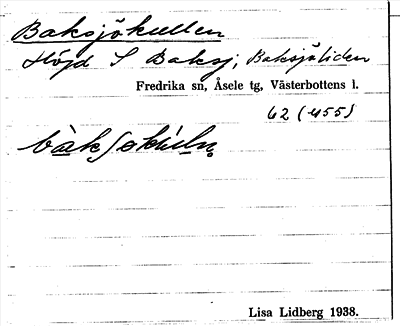 Baksjökullen
Höjd S Baksj; Baksjöliden
Fredrika sn, Åsele tg, Västerbottens l.
62 (455)
Lisa Lidberg 1938.